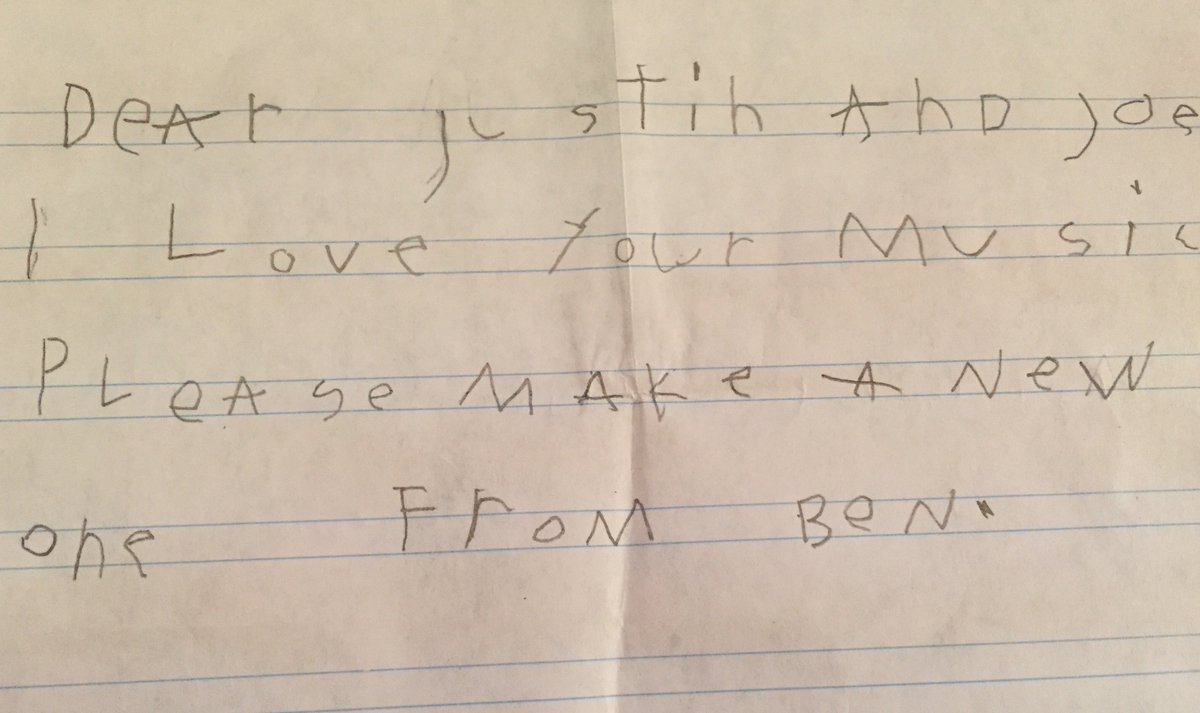 DeAr justin AnD joe
I Love Your Music
PLeAse MAke A New
one From BeN.